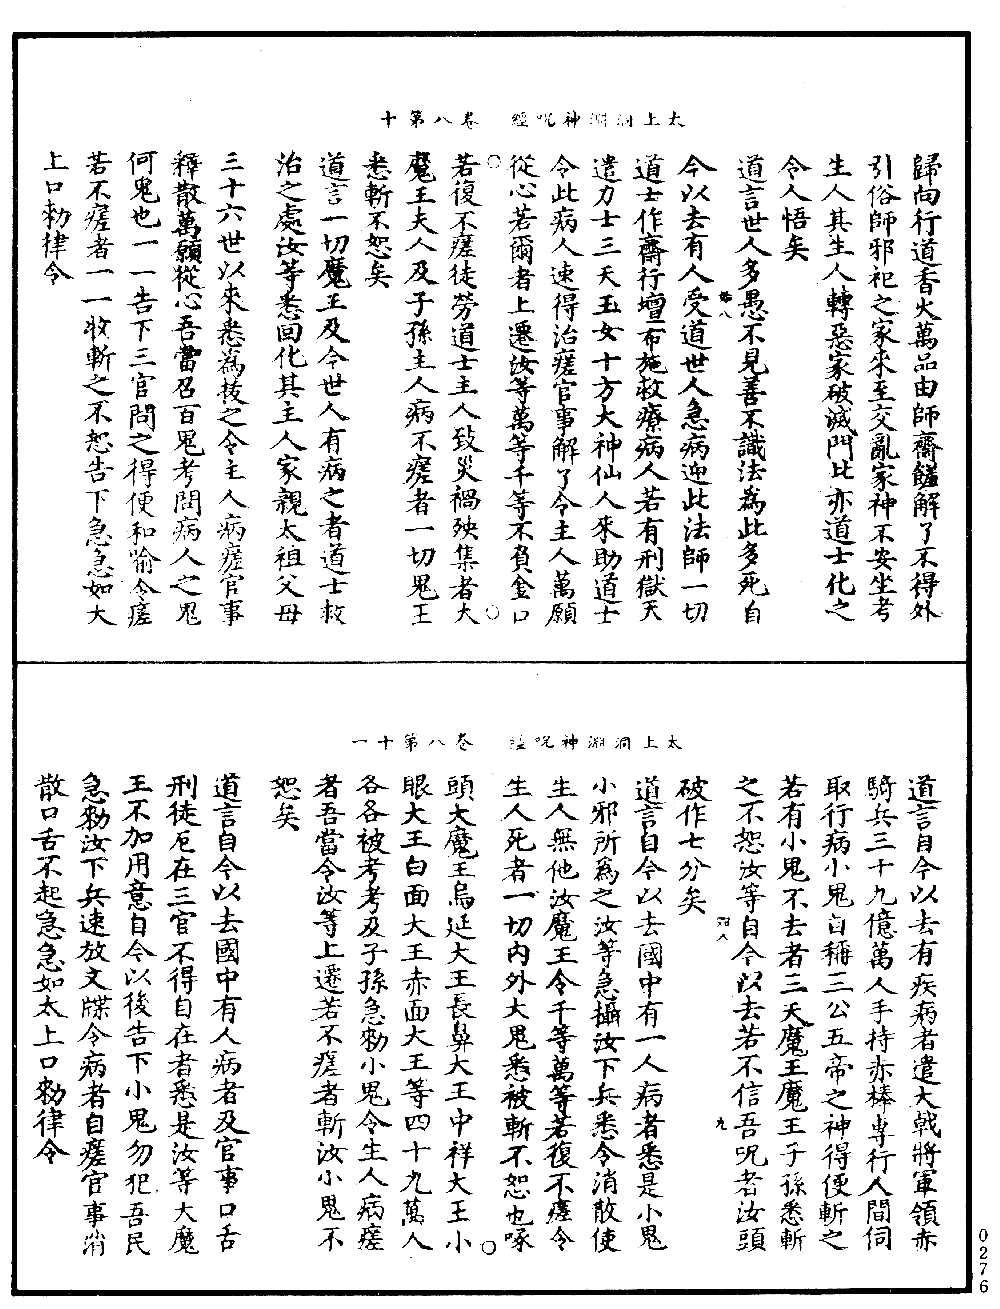 太上洞淵神呪經　卷八第十
歸向行道香火萬品由師齋饚解了不得外
引俗師邪祀之家來至交亂家神不安坐考
生人其生人轉惡家破滅門比亦道士化之
令人悟矣
道言世人多愚不見善不識法為此多死自
今以去有人受道世人急病迎此法師一切
道士作齋行壇布施救療病人若有刑獄天
遣力士三天玉女十方大神仙人來助道士
令此病人速得治瘥官事解了令主人萬願
從心若爾者上遷汝等萬等千等不負金口
若復不瘥徒勞道士主人致災禍殃集者大
魔王夫人及子孫主人病不瘥者一切鬼王
悉斬不恕矣
道言一切魔王及今世人有病之者道士救
治之處汝等悉回化其主人家親太祖父母
三十六世以來悉為拔之令主人病瘥官事
釋散萬願從心吾當召百鬼考問病人之鬼
何鬼也一一告下三官問之得便和喻令瘥
若不瘥者一一收斬之不恕告下急急如太
上口勑律令
太上洞淵神呪經　卷八第十一
道言自今以去有疾病者遣大戟將軍領赤
騎兵三十九億萬人手持赤棒専行人間伺
取行病小鬼自稱三公五帝之神得便斬之
若有小鬼不去者三天魔王魔王子孫悉斬
之不恕汝等自今以去若不信吾呪者汝頭
破作七分矣
道言自今以去國中有一人病者悉是小鬼
小邪所為之汝等急攝汝下兵悉令消散使
生人無他汝魔王令千等萬等若復不瘥令
生人死者一切內外大鬼悉被斬不恕也啄
頭大魔王烏延大王長鼻大王中祥大王小
眼大王白面大王赤面大王等四十九萬人
各各被考考及子孫急勑小鬼令生人病瘥
者吾當令汝等上遷若不瘥者斬汝小鬼不
恕矣
道言自今以去國中有人病者及官事口舌
刑徒厄在三官不得自在者悉是汝等大魔
王不加用意自今以後告下小鬼勿犯吾民
急勑汝下兵速放文牒令病者自瘥官事消
散口舌不起急急如太上口勑律令
九
0276